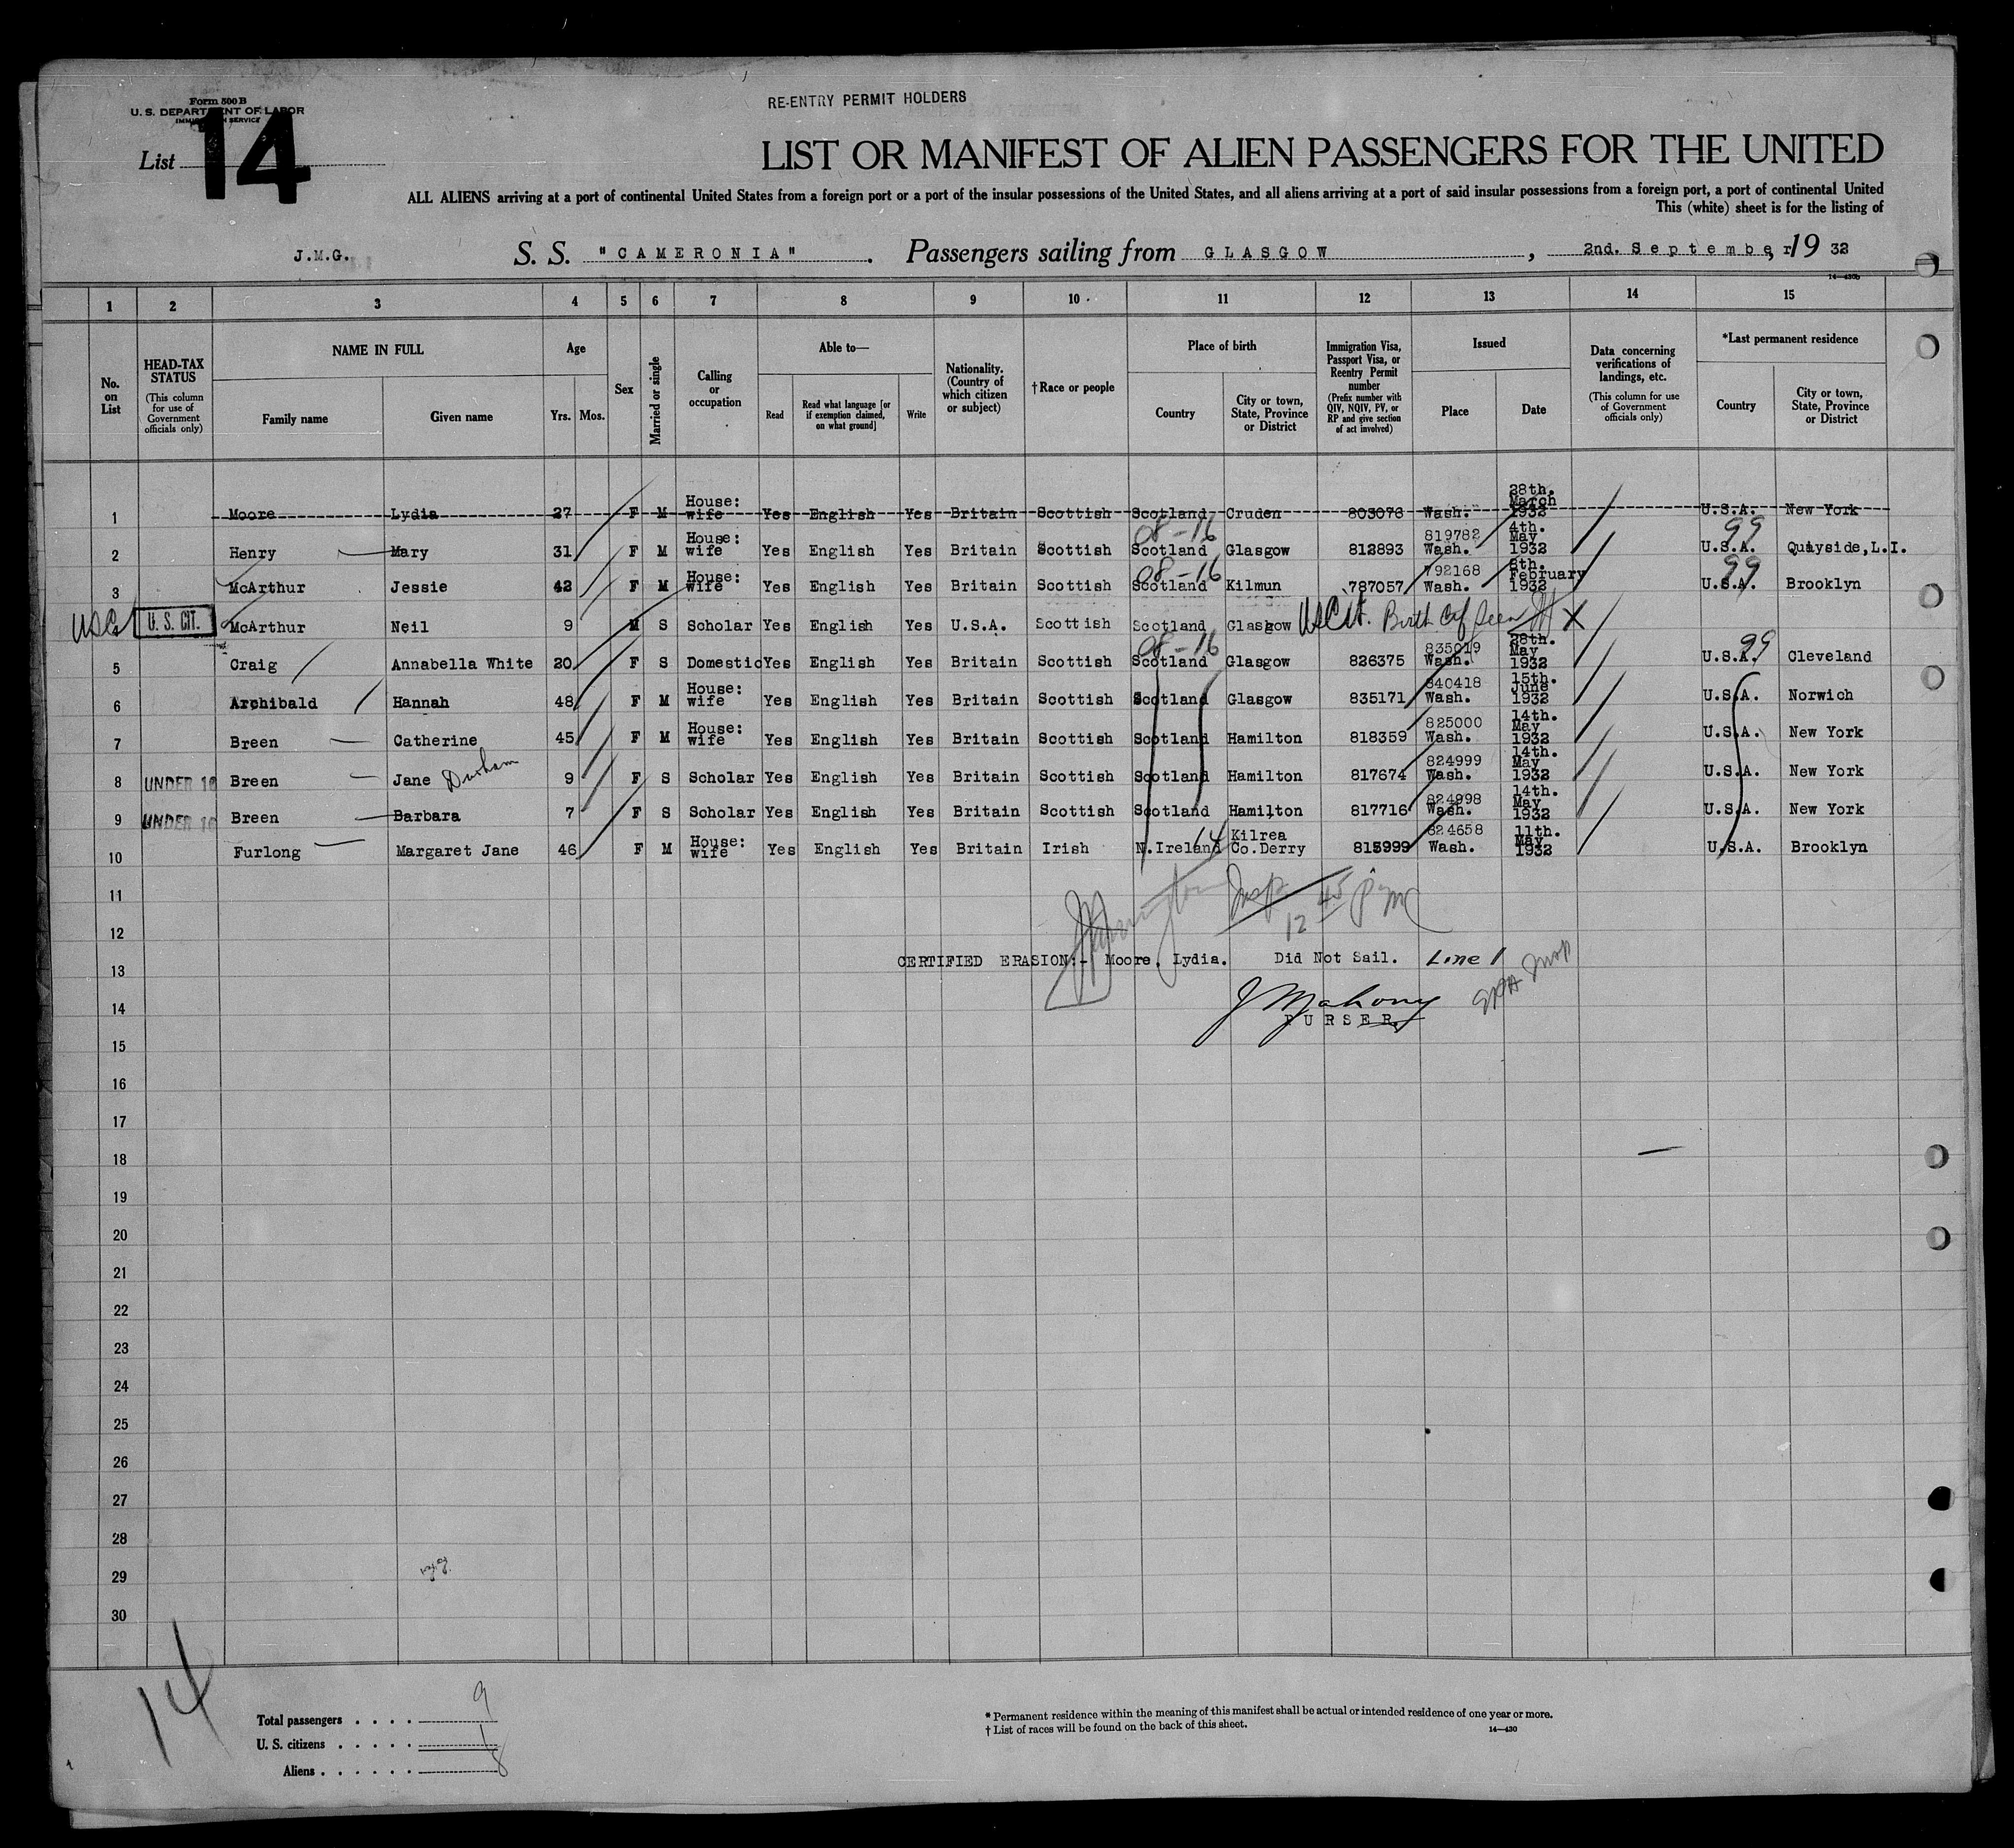 Form 500 B
U. S. DEPARTMENT OF LABOR
IMMIGRATION SERVICE
RE-ENTRY PERMIT HOLDERS
List 14
LIST OR MANIFEST OF ALIEN PASSENGERS FOR THE UNITED
ALL ALIENS arriving at a port of continental United States from a foreign port or a port of the insular possessions of the United States, and all aliens arriving at a port of said insular possessions from a foreign port, a port of continental United
This (white) sheet is for the listing of
J.M.G. S. S. "CAMERONIA". Passengers sailing from GLASGOW, 2nd. September, 19 32
14—430b
1 2 3 4 5 6 7 8 9 10 11 12 13 14 15
No. on List
HEAD-TAX STATUS
(This column for use of Government officials only)
NAME IN FULL
Family name Given name
Age
Yrs. Mos.
Sex
Married or single
Calling or occupation
Able to—
Read Read what language [or if exemption claimed, on what ground] Write
Nationality. (Country of which citizen or subject)
†Race or people
Place of birth
Country City or town, State, Province or District
Immigration Visa, Passport Visa, or Reentry Permit number
(Prefix number with QIV, NQIV, PV, or RP and give section of act involved)
Issued
Place Date
Data concerning verifications of landings, etc.
(This column for use of Government officials only)
*Last permanent residence
Country City or town, State, Province or District
1 Moore Lydia 27 F M House: wife Yes English Yes Britain Scottish Scotland Cruden 803076 Wash. 28th. March 1932 U.S.A. New York
2 Henry Mary 31 F M House: wife Yes English Yes Britain Scottish Scotland 08-16 Glasgow 812893 819782 Wash. 4th. May 1932 U.S.A. 99 Quayside, L.I.
3 McArthur Jessie 42 F M House: wife Yes English Yes Britain Scottish Scotland 08-16 Kilmun 787057 792168 Wash. 8th. February 1932 U.S.A. 99 Brooklyn
USC U. S. CIT. McArthur Neil 9 M S Scholar Yes English Yes U.S.A. Scottish Scotland Glasgow US Cit. Birth Cert Seen X
5 Craig Annabella White 20 F S Domestic Yes English Yes Britain Scottish Scotland 08-16 Glasgow 826375 835019 Wash. 28th. May 1932 U.S.A. 99 Cleveland
6 Archibald Hannah 48 F M House: wife Yes English Yes Britain Scottish Scotland Glasgow 835171 840418 Wash. 15th. June 1932 U.S.A. Norwich
7 Breen Catherine 45 F M House: wife Yes English Yes Britain Scottish Scotland Hamilton 818359 825000 Wash. 14th. May 1932 U.S.A. New York
8 UNDER 16 Breen Jane Durham 9 F S Scholar Yes English Yes Britain Scottish Scotland Hamilton 817674 824999 Wash. 14th. May 1932 U.S.A. New York
9 UNDER 16 Breen Barbara 7 F S Scholar Yes English Yes Britain Scottish Scotland Hamilton 817716 824998 Wash. 14th. May 1932 U.S.A. New York
10 Furlong Margaret Jane 46 F M House: wife Yes English Yes Britain Irish N.Ireland 14 Kilrea Co.Derry 815999 824658 Wash. 11th. May 1932 U.S.A. Brooklyn
11 Insp
12 12 45 pm
13 CERTIFIED ERASION:- Moore, Lydia. Did Not Sail. Line 1
14 J Mahony
PURSER.
15
16
17
18
19
20
21
22
23
24
25
26
27
28
29
30
14
Total passengers . . . . 9
U. S. citizens . . . . . 1
Aliens . . . . . . 8
* Permanent residence within the meaning of this manifest shall be actual or intended residence of one year or more.
† List of races will be found on the back of this sheet.
14—430